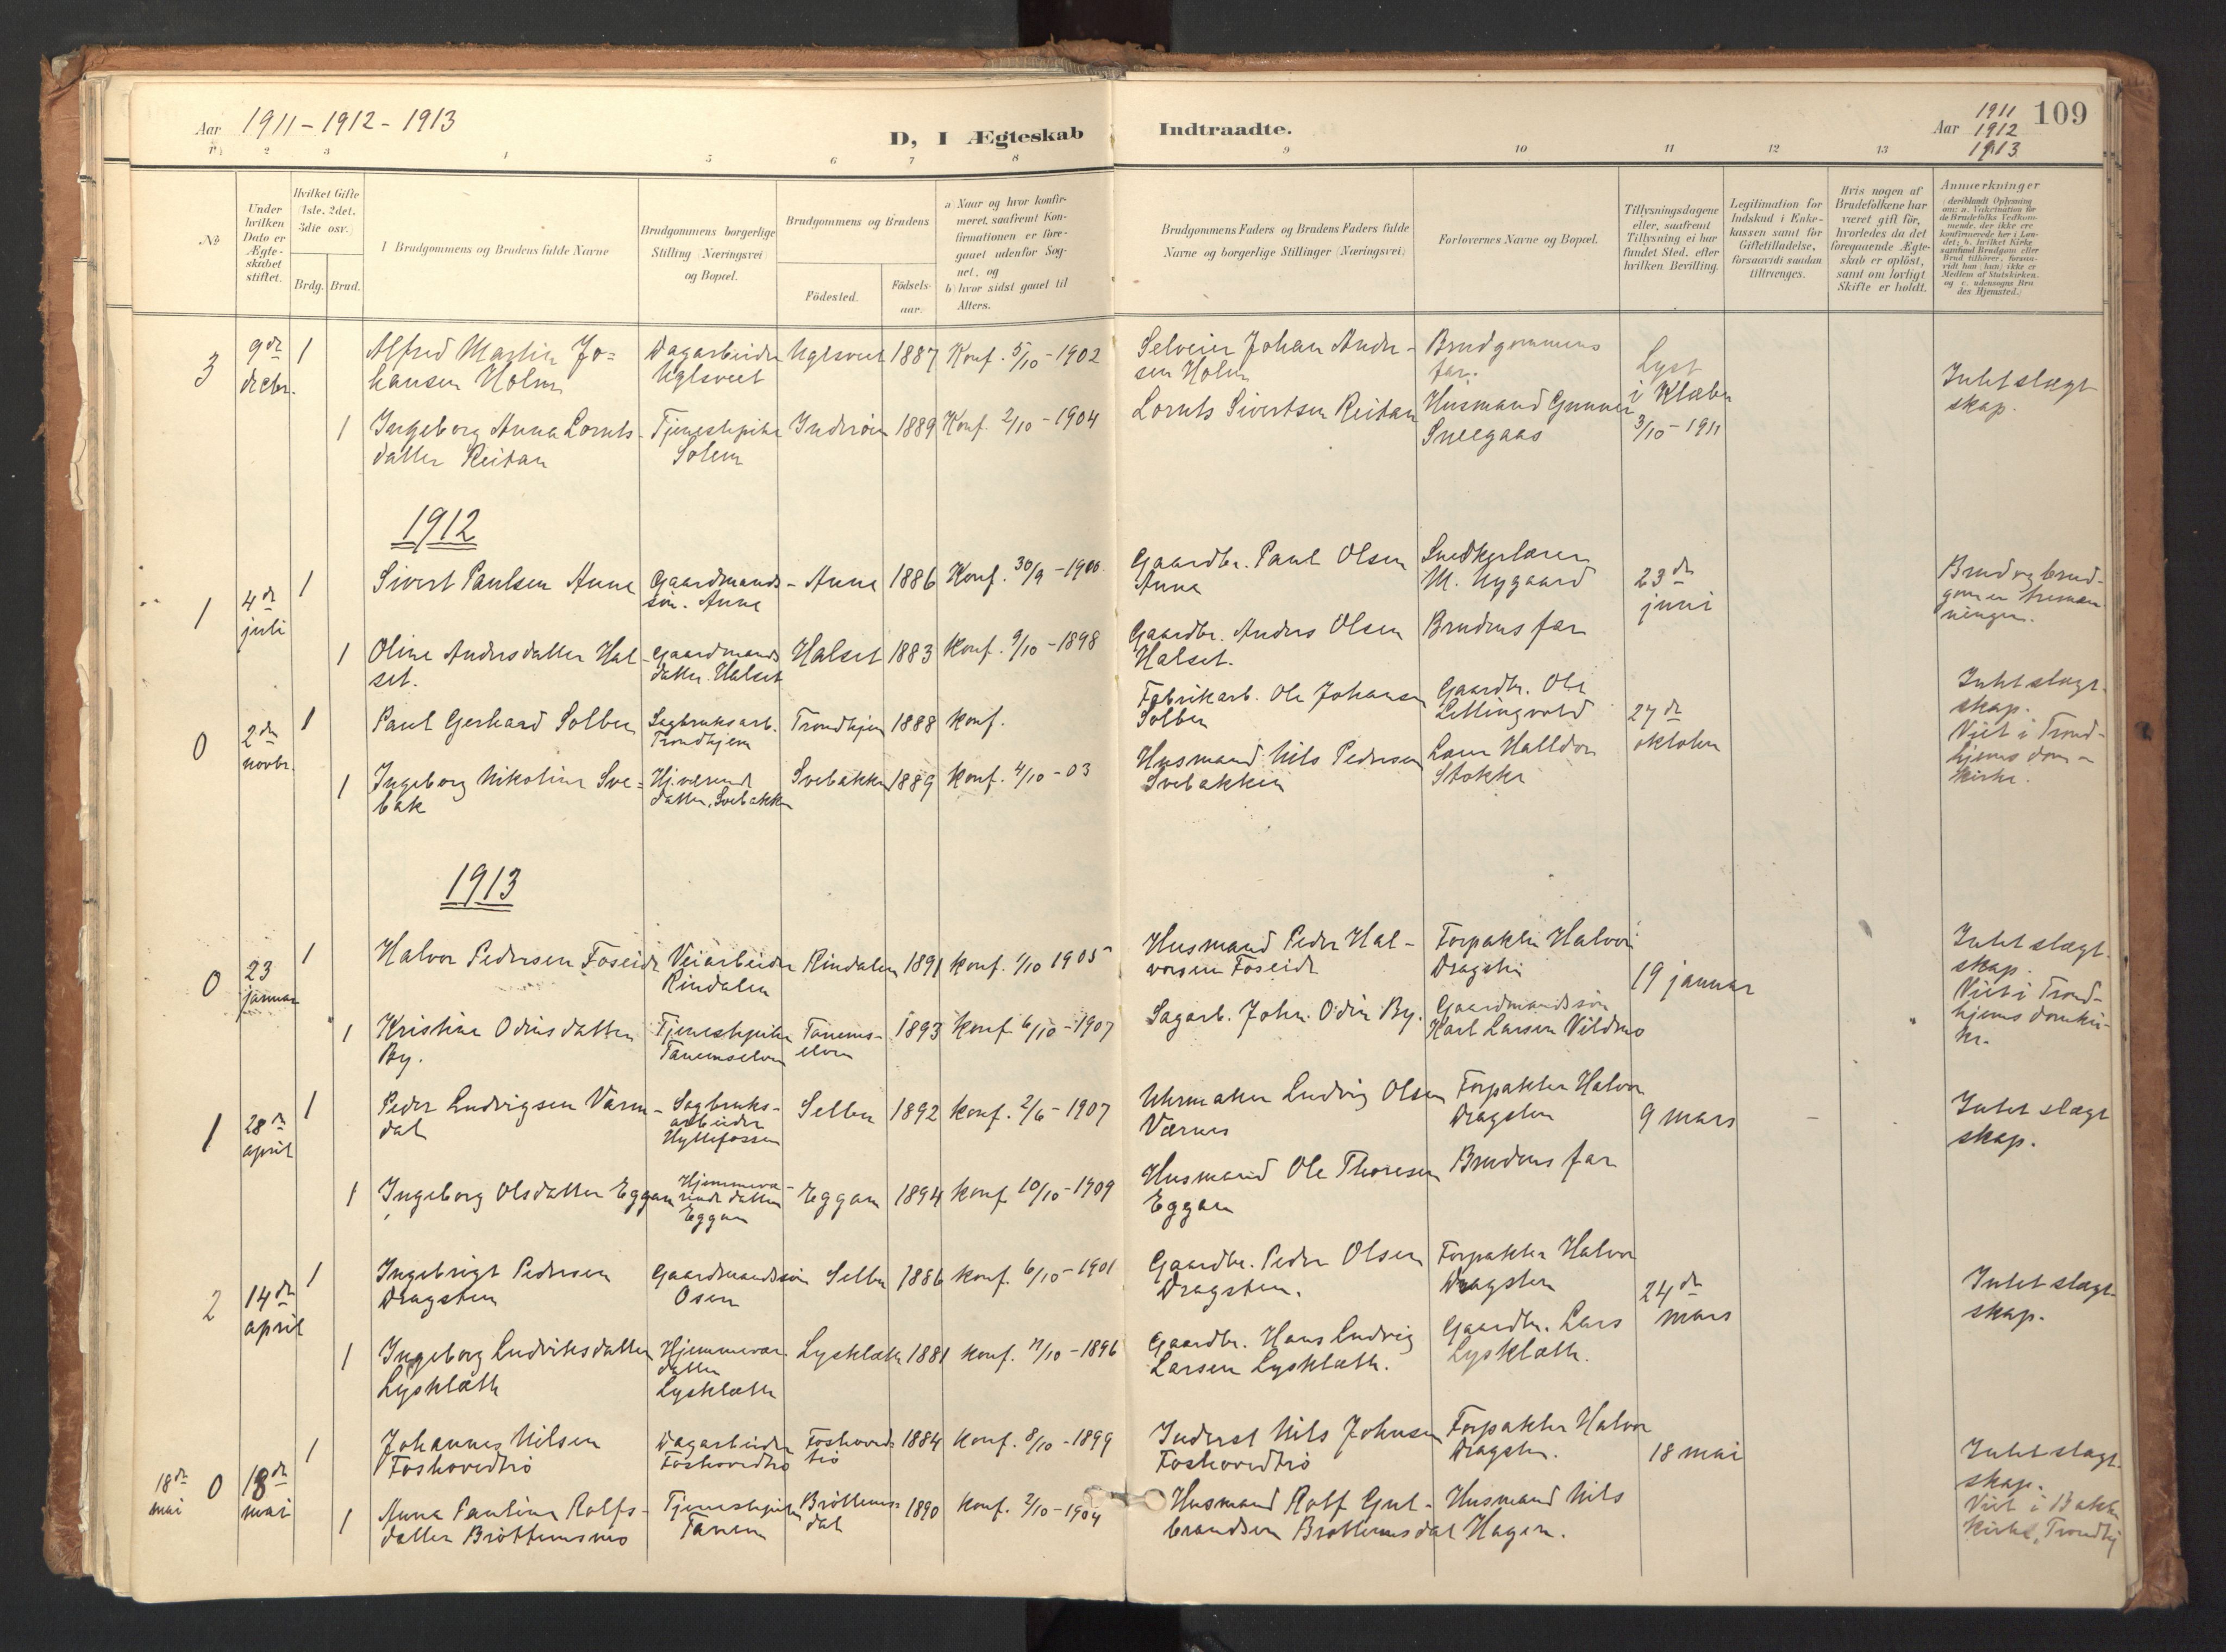 Aar 1911 - 1912 - 1913
D, I Ægteskab
Indtraadte.
Aar 1911
1912
1913
109
2 3 4 5 6 7 8
9 10 11 12 13
No
Under hvilken Dato er Ægteskabet stiftet.
Hvilket Gifte (1ste, 2det, 3die osv.)
Brdg. Brud.
Brudgommens og Brudens fulde Navne
Brudgommens borgerlige Stilling (Næringsvei) og Bopæl.
Brudgommens og Brudens
Födested.
Födsels-aar.
a) Naar og hvor konfirmeret, saafremt Konfirmationen er foregaaet udenfor Sognet, og
b) hvor sidst gaaet til Alters.
Brudgommens Faders og Brudens Faders fulde Navne og borgerlige Stillinger (Næringsvei)
Forlovernes Navne og Bopæl.
Tillysningsdagene eller, saafremt Tillysning ei har fundet Sted, efter hvilken Bevilling.
Legitimation for Indskud i Enkekassen samt for Giftetilladelse, forsaavidt saadan tiltrænges.
Hvis nogen af Brudefolkene har været gift før, hvorledes da det foregaaende Ægteskab er opløst, samt om lovligt Skifte er holdt.
Anmærkninger (deriblandt Oplysning om: a. Vakcination for de Brudefolks Vedkommende, der ikke ere konfirmerede her i Landet; b. hvilket Kirkesamfund Brudgom eller Brud tilhører, forsaavidt han (hun) ikke er Medlem af Statskirken, og c. udensogns Brudes Hjemsted.)
3 9de decbr. 1 Alfred Martin Johansen Holm Dagarbeider Uglsveet Uglsveet 1887 Konf. 5/10 - 1902 Selveier Johan Andersen Holm Brudgommens far. Lyst i Klæbu 3/10 - 1911 Intet slægtskap.
1 Ingeborg Anna Lorntsdatter Reitan Tjenestepike Solem Inderøien 1889 Konf. 2/10 - 1904 Lornts Sivertsen Reitan Husmand Gunner Sneegaas
1912
1 4de juli 1 Sivert Paulsen Aune Gaardmandssön. Aune Aune 1886 Konf. 30/9 - 1900. Gaardbr. Paul Olsen Aune Snedkerlærer M. Nygaard 23de juni Brud og brudgom er tremenninger.
1 Oline Andersdatter Halset. Gaardmandsdatter. Halset Halset 1883 Konf. 9/10 - 1898 Gaardbr. Anders Olsen Halset. Brudens far
0 2den novbr. 1 Paul Gerhard Solber Sagbruksarb. Trondhjem Trondhjem 1888 konf. Fabrikarb. Ole Johansen Solber Gaardbr. Ole Lettingvold 27de oktober Intet slægtskap. Viet i Trondhjems domkirke.
1 Ingeborg Nikoline Svebak Hj.værende datter, Svebakken Svebakken 1889 konf. 4/10 - 03 Husmand Nils Pedersen Svebakken Lærer Halldor Stokke
1913
0 23 januar 1 Halvor Pedersen Foseide Veiarbeider Rindalen Rindalen 1891 konf. 1/10 1905 Husmand Peder Halvorsen Foseide Forpakter Halvor Dragsten 19 januar Intet slægtskap. Viet i Trondhjems domkirke.
1 Kristine Odinsdatter By. Tjenestepike Tanemselven Tanemselven 1893 konf. 6/10 - 1907 Sagarb. John Odin By. Gaardmandssön Karl Larsen Vildmo
1 28de april 1 Peder Ludvigsen Værndal Sagbruksarbeider Hyttefossen Selbu 1892 konf. 2/6 - 1907 Uhrmaker Ludvig Olsen Værnes Forpakter Halvor Dragsten 9 mars - Intet slægtskap.
1 Ingeborg Olsdatter Eggan Hjemmeværende datter Eggan Eggan 1894 konf. 10/10 - 1909 Husmand Ole Thoresen Eggan Brudens far
2 14de april 1 Ingebrigt Pedersen Dragsten Gaardmandssön Osen Selbu 1886 konf. 6/10 - 1901 Gaardbr. Peder Olsen Dragsten. Forpakter Halvor Dragsten 24de mars Intet slægtskap.
1 Ingeborg Ludviksdatter Lysklætt Hjemmevær. datter Lysklætt Lysklætt 1881 konf. 11/10 - 1896 Gaardbr. Hans Ludvig Larsen Lysklætt. Gaardbr. Lars Lysklætt.
18de mai 0 18de mai 1 Johannes Nilsen Foshovedtrö Dagarbeider Foshovedtrö Foshovedtrö 1884 konf. 8/10 - 1899 Inderst Nils Johnsen Foshovedtrö Forpakter Halvor Dragsten. 18 mai Intet slægtskap. Viet i Bakke kirke, Trondhj
1 Anna Pauline Rolfsdatter Bröttemsmo Tjenestepike Tanem Bröttemsdal 1890 konf. 2/10 - 1904 Husmand Rolf Gulbrandsen Bröttemsdal Husmand Nils Hagen.